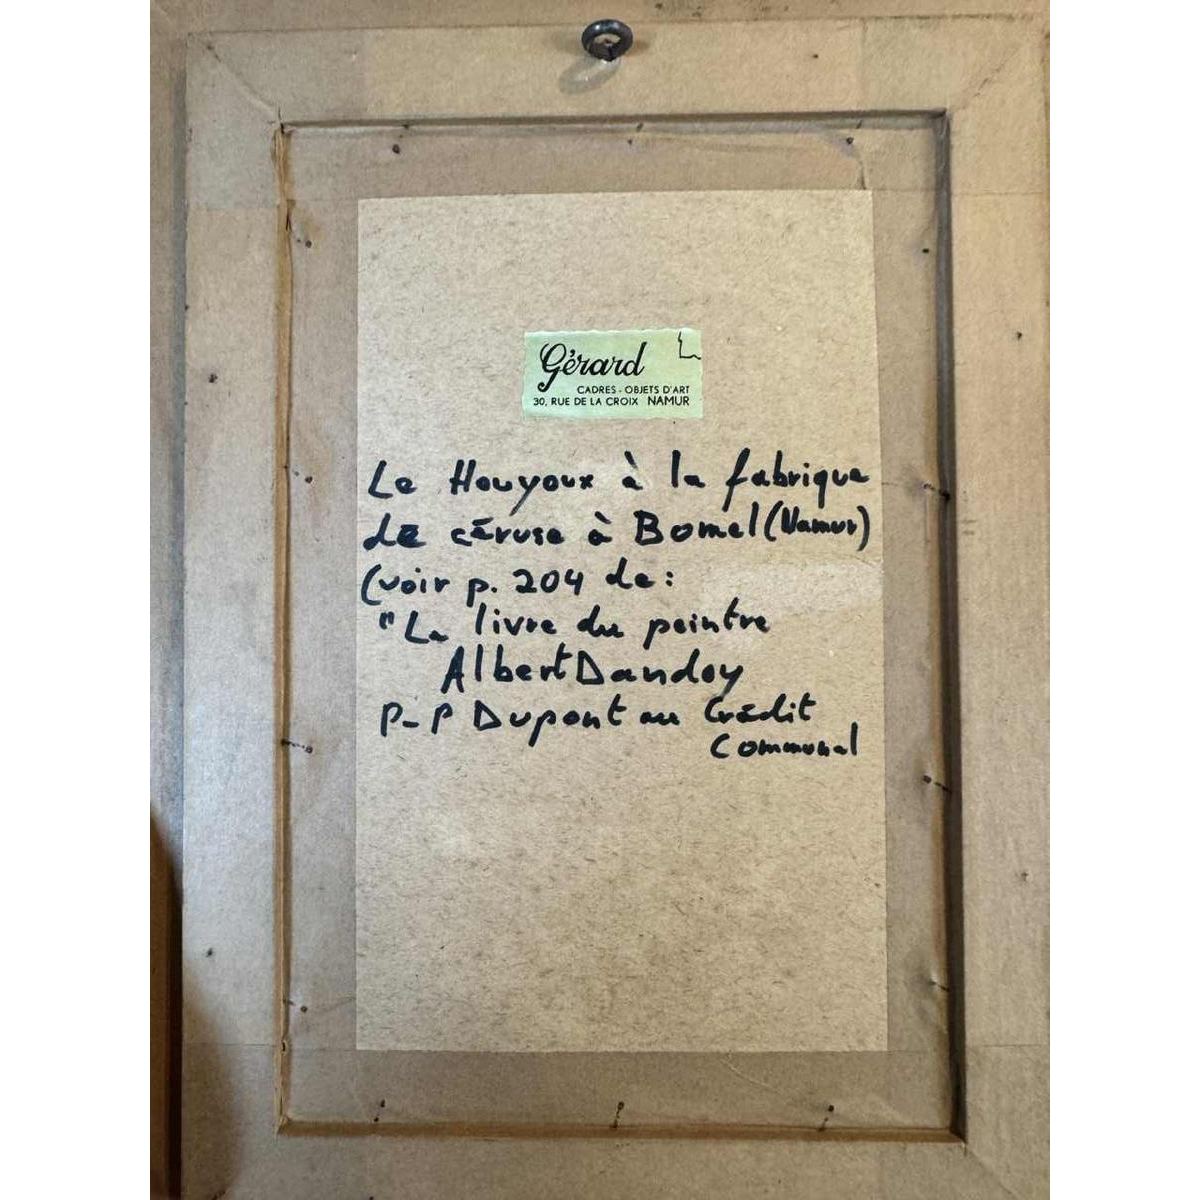 Gérard
CADRES - OBJETS D'ART
30, RUE DE LA CROIX NAMUR
Le Houyoux à la fabrique
de céruse à Bomel (Namur)
(voir p. 204 de:
"Le livre du peintre
Albert Dandoy
P-P Dupont au Crédit
Communal